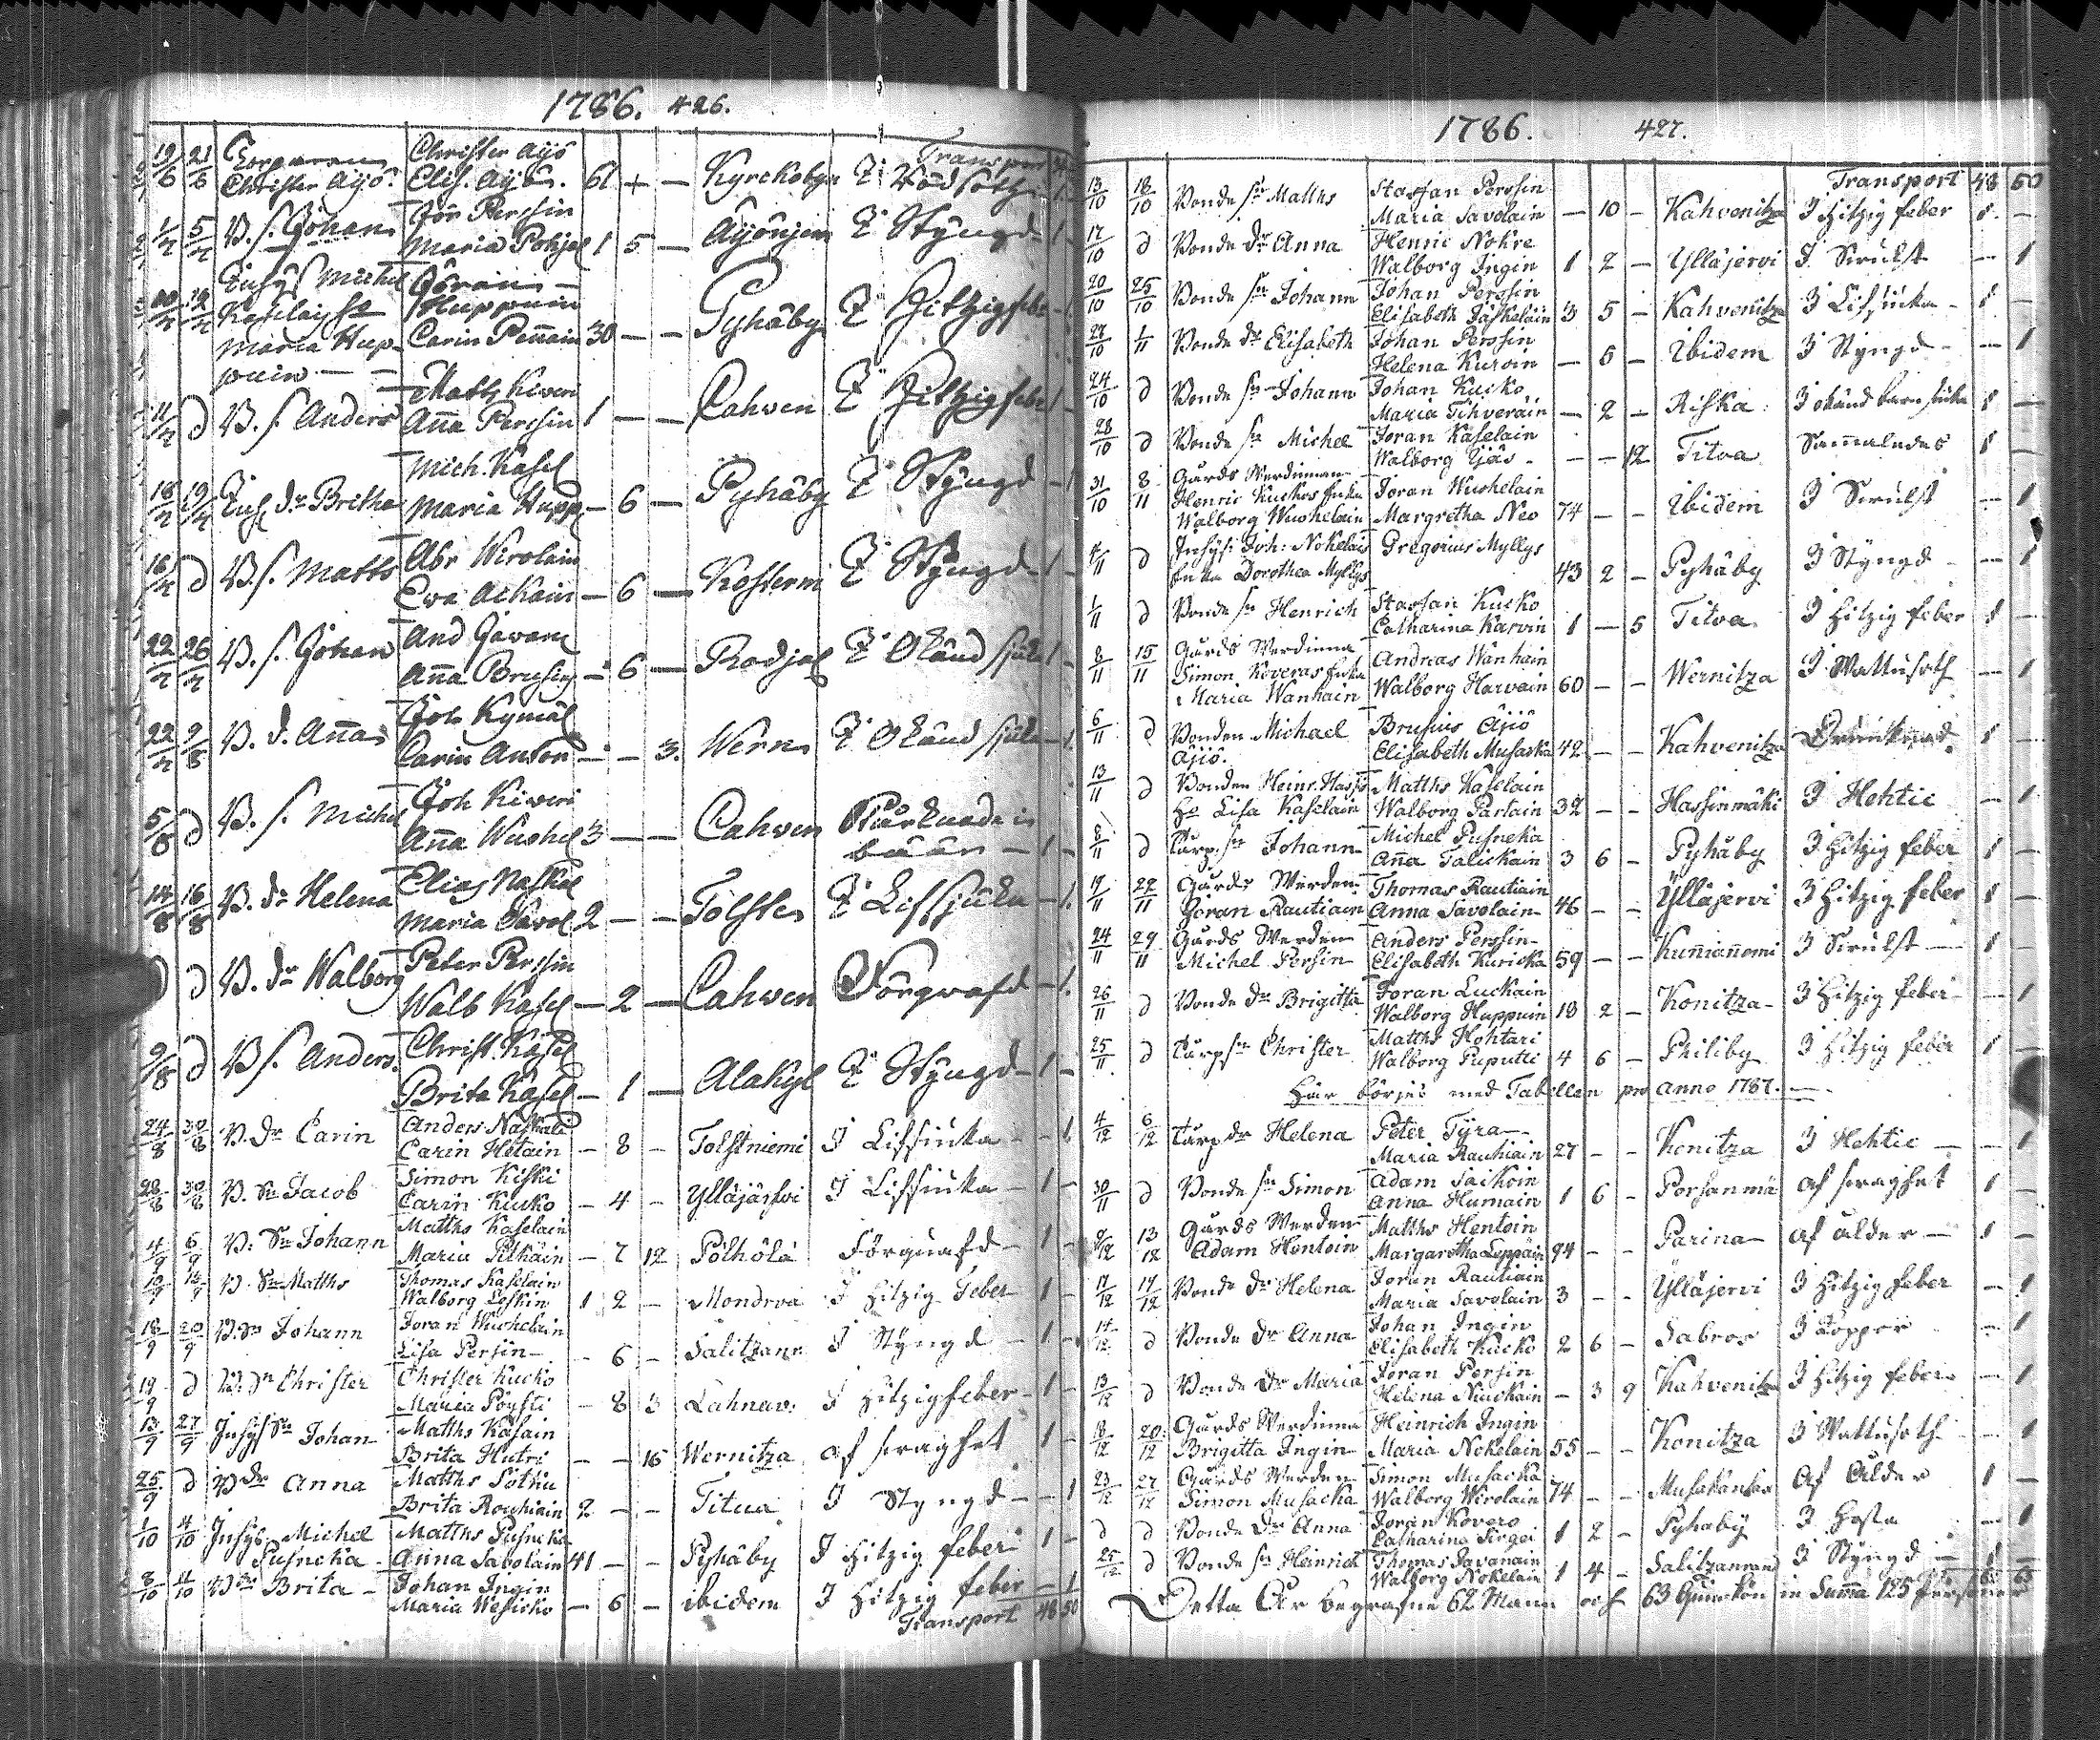 1786. 426.
Transport
19/6 21/6 Christer Äijö. Christer Äijö Elis. Äijö. 61 + — Kyrckobyn I Rödsothn 1
1/7 5/7 B. s. Johan Jör Perssin Maria Pohjal 1 5 — I Styngd 1
Inhys Michel
Maria Hup-
puin Huppuin Carin Pennain 30 — — Pyhäby I Hitzigfeber 1
11/7 d B. s. Anders Matts Kiveri Anna Perssin 1 — — Cahven I Hitzigfeber 1
18/7 19/7 Inh dr Britha Mich. Kasel Maria Hupp — 6 — Pyhäby I Styngd 1
16/7 d B. s. Matts Abr Wirolain Eva Ackain — 6 — I Styngd 1
22/7 26/7 B. s. Johan And Javan Anna Brusin — 6 — Rodjal I Okänd sjuk 1
22/7 2/8 B. d. Anna Joh Kymäl Carin Anton — — 3. Wern I Okänd sjuk 1
5/8 d B. s. Michel Joh Kiveri Anna Wuohel 3 — — Cahven
14/8 16/8 B. dr Helena Elias Naskal Maria Savol 2 — — Tolsten I Lifsjuka — 1.
d d B. dr Walborg Peter Perssin Walb Kasel — 2 — Cahven Förqvafd — 1.
9/8 d B s. Anders. Christ. Käsel Brita Käsel — 1 — Alakyl I Styngd 1 —
24/8 30/8 B. dr Carin Anders Naskali Carin Hetain — 8 — Tolstniemi I Lifsiuka — 1
28/8 30/8 B. Sn Jacob Simon Kiski Carin Kucko — 4 — Ylläjärfvi I Lifsiuka — 1 —
4/9 6/9 B: Sn Johann Matths Kaselain Maria Pilkäin — 7 12 Pölhölä Förquafd — 1 —
B. Sn Matths Thomas Kaselain Walborg Loskin 1 2 — Mondroa I Hitzig Feber 1 —
18/9 20/9 B. sn Johann Joran Wuohelain Lisa Persin — 6 — Salitzann I Styngd — 1 —
19/9 d B: sn Christer Christer Kucko Maria Pöysti — 8 3 Lahnav: I Hitzigfeber — 1 —
13/9 27/9 Inhys Sn Johan Matths Käsain Brita Hutri — — 16 Wernitza af svaghet 1 —
25/9 d B dr Anna Matths Sothu Brita Rouhiain 2 — — Titua I Styngd — — 1
1/10 4/10 Inhys. Michel Pusneka Matths Pusneka Anna Savolain 41 — — Pyhäby I Hitzig feber 1 —
8/10 11/10 B dr Brita Johan Ingin Maria Wesicko — 6 — ibidem I Hitzig feber — 1
Transport 48 50
1786. 427.
Transport 48 50
13/10 18/10 Bonde sn Matths Staffan Perssin Maria Savolain — 10 — Kahvenitza I Hitzig feber 1. —
17/10 d Bonde dr Anna Henric Nokre Walborg Ingin 1 2 — Ylläjervi I Swulst — 1
20/10 25/10 Bonde sn Johann Johan Perssin Elisabeth Jäskeläin 3 5 — Kahvenitza I Lifsiuka — 1 —
27/10 1/11 Bonde dr Elisabeth Johan Perssin Helena Kurvin — 6 — Ibidem I Styngd — — 1
24/10 d Bonde sn Johann Johan Kucko Maria Tihverain — 2 — Riska I okänd barn siuka 1 —
28/10 d Bonde sn Michel Joran Käselain Walborg Äjäs — — — 12 Titva Sammalades 1
31/10 8/11 Gårds Werdinnan Henric Kuckos Enka Walborg Wuohelain Joran Wuohelain Margretha Neo 74 — — Ibidem I Swulst — 1
4/11 d Inhys: Joh: Nokelais Enka Dorothea Myllys Gregorius Myllys 43 2 — Pyhäby I Styngd — — 1
1/11 d Bonde sn Henrich Staffan Kucko Catharina Karvin 1 — 5 Titva I Hitzig feber 1 —
8/11 15/11 Gårds Werdinna Simon Koveras Enka Maria Wanhain Andreas Wanhain Walborg Harvain 60 — — Wernitza I Wattusoth — 1
6/11 d Bonden Michael Äjiö. Brusius Äjiö Elisabeth Musacka 42 — — Kahvenitza Drunknad 1 —
13/11 d Bonden Heinr. Hassis Ho Lisa Kaselain Matths Kaselain Walborg Partain 32 — — Hassinmäki I Hektic — 1
8/11 d Torp. sn Johann Michel Pusneka Anna Talickain 3 6 — Pyhäby I Hitzig feber 1 —
19/11 22/11 Gårds Werden Göran Rautiain Thomas Rautiain Anna Savolain 46 — — Ylläjervi I Hitzig feber 1 —
24/11 29/11 Gårds Werden Michel Persin Anders Perssin Elisabeth Kuricka 59 — — Kunnianiemi I Swulst — 1 —
26/11 d Bonde dr Brigitta Joran Luckain Walborg Huppuin 13 2 — Konitza I Hitzig feber — — 1
25/11 d Torp sn Christer Matths Hohtari Walborg Puputti 4 6 — Philiby I Hitzig feber 1 —
Här börjes med Tabellen pro anno 1787.
4/12 6/12 Torp dr Helena Peter Tyra Maria Rauhiain 27 — — Konitza I Hektic — — 1
30/11 d Bonde sn Simon Adam Saikoin Anna Humain 1 6 — Porsanmä af svaghet 1 —
9/12 13/12 Gårds Werden Adam Hentoin Matths Hentoin Margaretha Leppäin 94 — — Parina af ålder — 1 —
11/12 17/12 Bonde dr Helena Joran Rautiain Maria Savolain 3 — — Ylläjervi I Hitzig feber — 1
14/12 d Bonde dr Anna Johan Ingin Elisabeth Kucko 2 6 — Sabroo I Kopper — 1
13/12 d Bonde dr Maria Joran Persin Helena Niuckain — 3 9 Kahvenitza I Hitzig feber — 1
18/12 20/12 Gårds Werdinna Brigitta Ingin Heinrich Ingin Maria Nokelain 55 — — Konitza I Wattusoth — 1
23/12 27/12 Gårds Werden Simon Musacka Simon Musacka Walborg Wirolain 74 — — Af Ålder 1 —
d d Bonde dr Anna Joran Kovero Catharina Sirgoi 1 2 — Pyhäby I Hosta — 1
25/12 d Bonde sn Heinrich Thomas Javanain Walborg Nokelain 1 4 — Salitzanrand I Styngd — 1 —
62 63
Detta År begrafne 62 Mann och 63 Quinkön in Summa 125 Personer